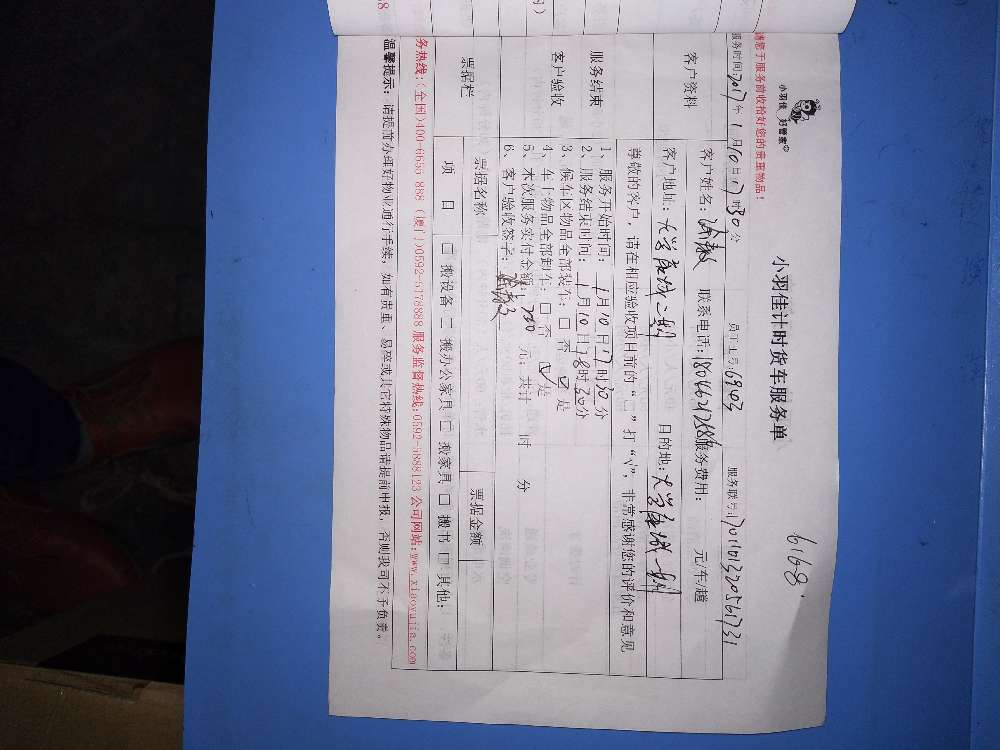 小羽佳 好管家
6168
小羽佳计时货车服务单
请您于服务前收拾好您的贵重物品!
服务时间: 2017年1月10日17时30分 员工工号: 6903 服务联号:
客户资料
客户姓名: 联系电话: 服务费用: 元/车/趟
客户地址: 大学康城二期 目的地: 大学康城一期
尊敬的客户,请在相应验收项目前的“□”打“√”,非常感谢您的评价和意见
服务结束
客户验收
1、服务开始时间: 1月10日17时30分
2、服务结束时间: 1月10日18时30分
3、候车区物品全部装车: □ 否 ☑ 是
4、车上物品全部卸车: □ 否 ☑ 是
5、本次服务实付金额: 200 元; 共计 时 分
6、客户验收签字:
票据栏
票据名称 票据金额
项 目 □ 搬设备 □ 搬办公家具 □ 搬家具 □ 搬书 □ 其他:
务热线:(全国)400-6655 888 (厦门)0592-5178888 服务监督热线:0592-5888123 公司网站:www.xiaoyujia.com
温馨提示: 请提前办理好物业通行手续, 如有贵重、易碎或其它特殊物品请提前申报, 否则我司不予负责。